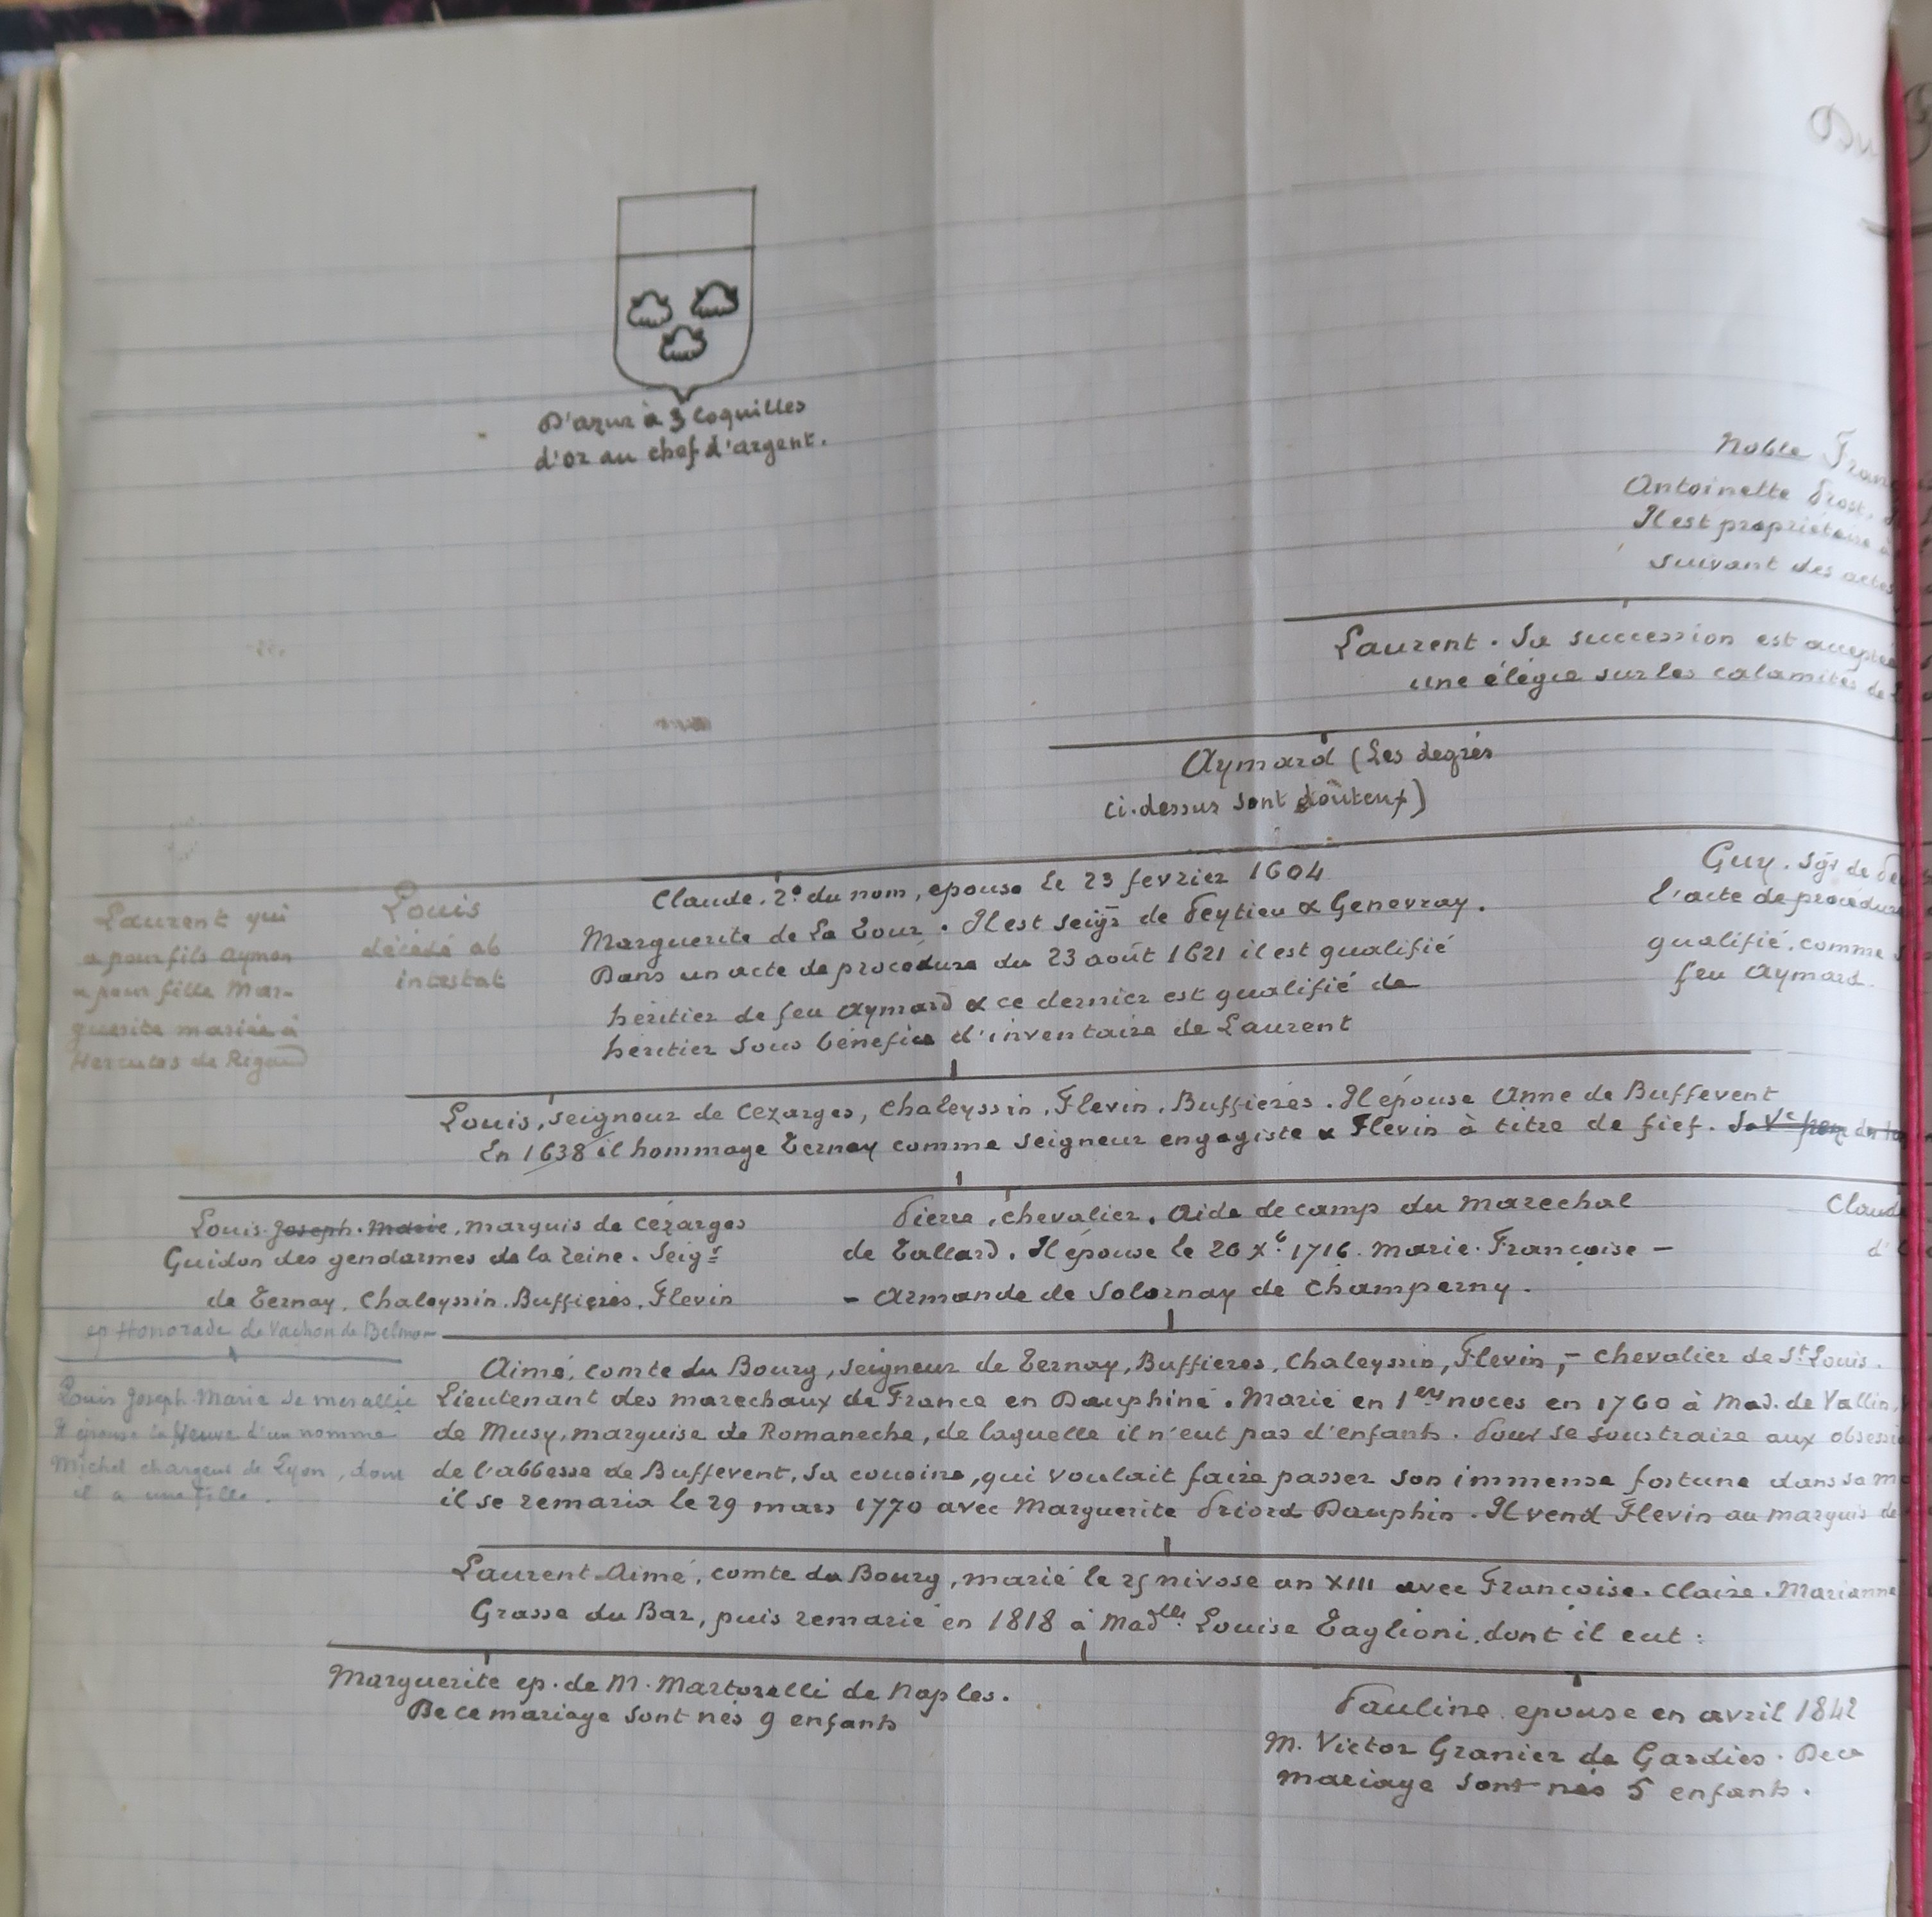 Du
D'azur à 3 coquilles
d'or au chef d'argent.
Noble Fran
Antoinette Prost.
Il est propriétaire à
suivant des actes
Laurent. Sa succession est acceptée
une élégie sur les calamités de
Aymard (Les degrés
ci-dessus sont douteux)
Laurent qui
a pour fils Aymon
& pour fille Mar-
guerite mariée à
Hercules de Rigaud
Louis
décédé ab
intestat
Claude, 2e du nom, epouse le 23 fevrier 1604
Marguerite de La Tour. Il est seigr de Peytieu & Genevray.
Dans un acte de procédure du 23 août 1621 il est qualifié
héritier de feu Aymard & ce dernier est qualifié de
héritier sous bénéfice d'inventaire de Laurent
Guy. sgr de
l'acte de procédure
qualifié comme
feu Aymard.
Louis, seigneur de Cezarges, Chaleyssin, Flevin, Buffières. Il épouse Anne de Buffevent
En 1638 il hommage Ternay comme seigneur engagiste & Flevin à titre de fief. Sa Ve
Louis Joseph. Marie, marquis de Cézarges
Guidon des gendarmes de la reine. Seigr
de Ternay, Chaleyssin, Buffières, Flevin
ep Honorade de Vachon de Belmon
Pierre, chevalier, Aide de camp du marechal
de Tallard. Il épouse le 20 Xe 1716. Marie. Françoise -
- Armande de Solornay de Champerny.
Claud
d'
Louis Joseph Marie se mesallie
Il épouse la veuve d'un nommé
Michel chargeur de Lyon, dont
il a une fille.
Aimé, comte du Bourg, seigneur de Ternay, Buffières, Chaleyssin, Flevin, - chevalier de St Louis.
Lieutenant des marechaux de France en Dauphiné. Marié en 1ères noces en 1760 à Mad. de Vallin,
de Musy, marquise de Romaneche, de laquelle il n'eut pas d'enfants. Pour se soustraire aux obsessi
de l'abbesse de Buffevent, sa cousine, qui voulait faire passer son immense fortune dans sa m
il se remaria le 29 mars 1770 avec Marguerite Priord Dauphin. Il vend Flevin au marquis de
Laurent-Aimé, comte du Bourg, marié le 25 nivose an XIII avec Françoise. Claire. Marianne
Grasse du Bar, puis remarié en 1818 à Madlle Louise Taglioni, dont il eut :
Marguerite ep. de M. Martorelli de Naples.
De ce mariage sont nés 9 enfants
Pauline epouse en avril 1842
M. Victor Granier de Gardies. De ce
mariage sont nés 5 enfants.